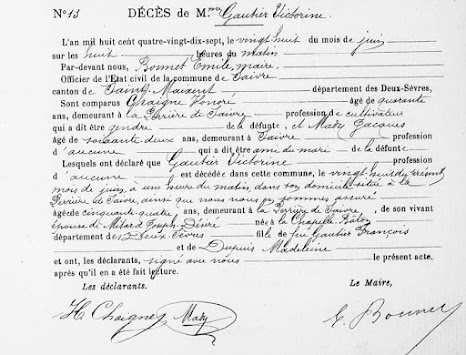 No 13 DÉCÈS de Mme Gautier Victorine
L'an mil huit cent quatre-vingt-dix-sept, le vingt huit du mois de juin
sur les huit heures du matin
Par-devant nous, Bonnet Emile, maire,
Officier de l'Etat civil de la commune de Saivre
canton de Saint Maixent département des Deux-Sèvres,
Sont comparus Chaigne Honoré âgé de quarante
ans, demeurant à la Perrière de Saivre profession de cultivateur
qui a dit être gendre de la défunte, et Mady Jacques
âgé de soixante deux ans, demeurant à Saivre profession
d'aucune qui a dit être ami du mari de la défunte
Lesquels ont déclaré que Gautier Victorine profession
d'aucune est décédée dans cette commune, le vingt huit du présent
mois de juin, à une heure du matin, dans son domicile situé à la
Perrière de Saivre, ainsi que nous nous en sommes assuré
âgée de cinquante quatre ans, demeurant à la Perrière de Saivre, de son vivant
épouse de Joseph Désiré née à la Chapelle Bâton
département des Deux Sèvres fille de feu Gautier François
et de Dupuis Madeleine
et ont, les déclarants, signé avec nous le présent acte,
après qu'il en a été fait lecture.
Les déclarants. Le Maire,
H Chaigne Mady E. Bonnet